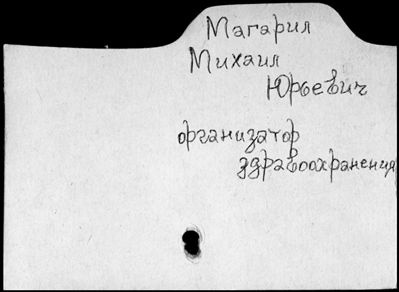 Магарил
Михаил
Юрьевич
организатор
здравоохранения